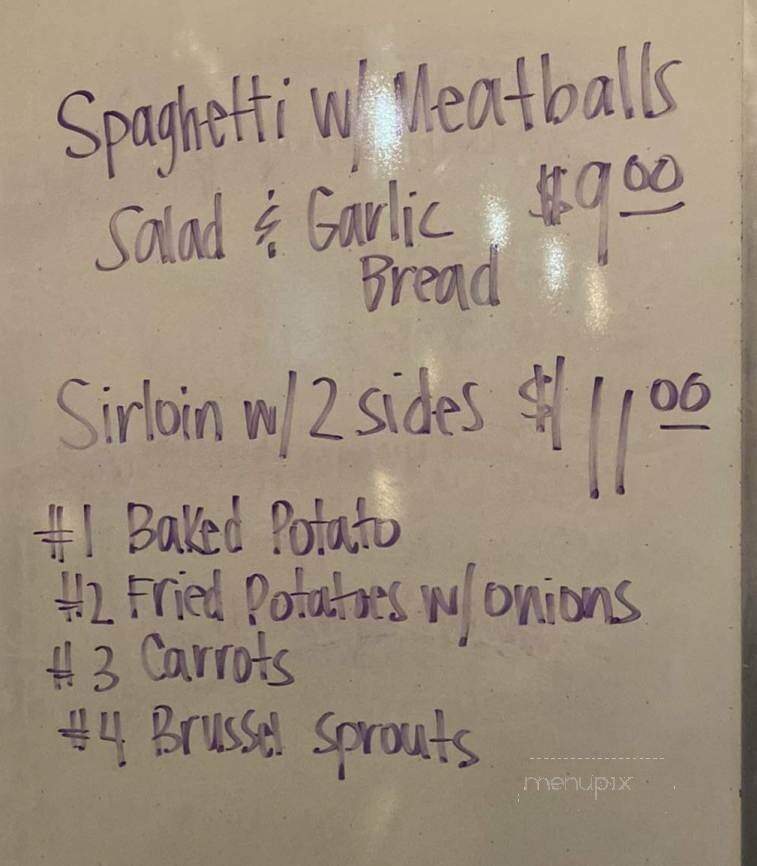 Spaghetti w/ Meatballs
Salad & Garlic $9.00
Bread
Sirloin w/ 2 sides $11.00
#1 Baked Potato
#2 Fried Potatoes w/ onions
#3 Carrots
#4 Brussel Sprouts
menupix